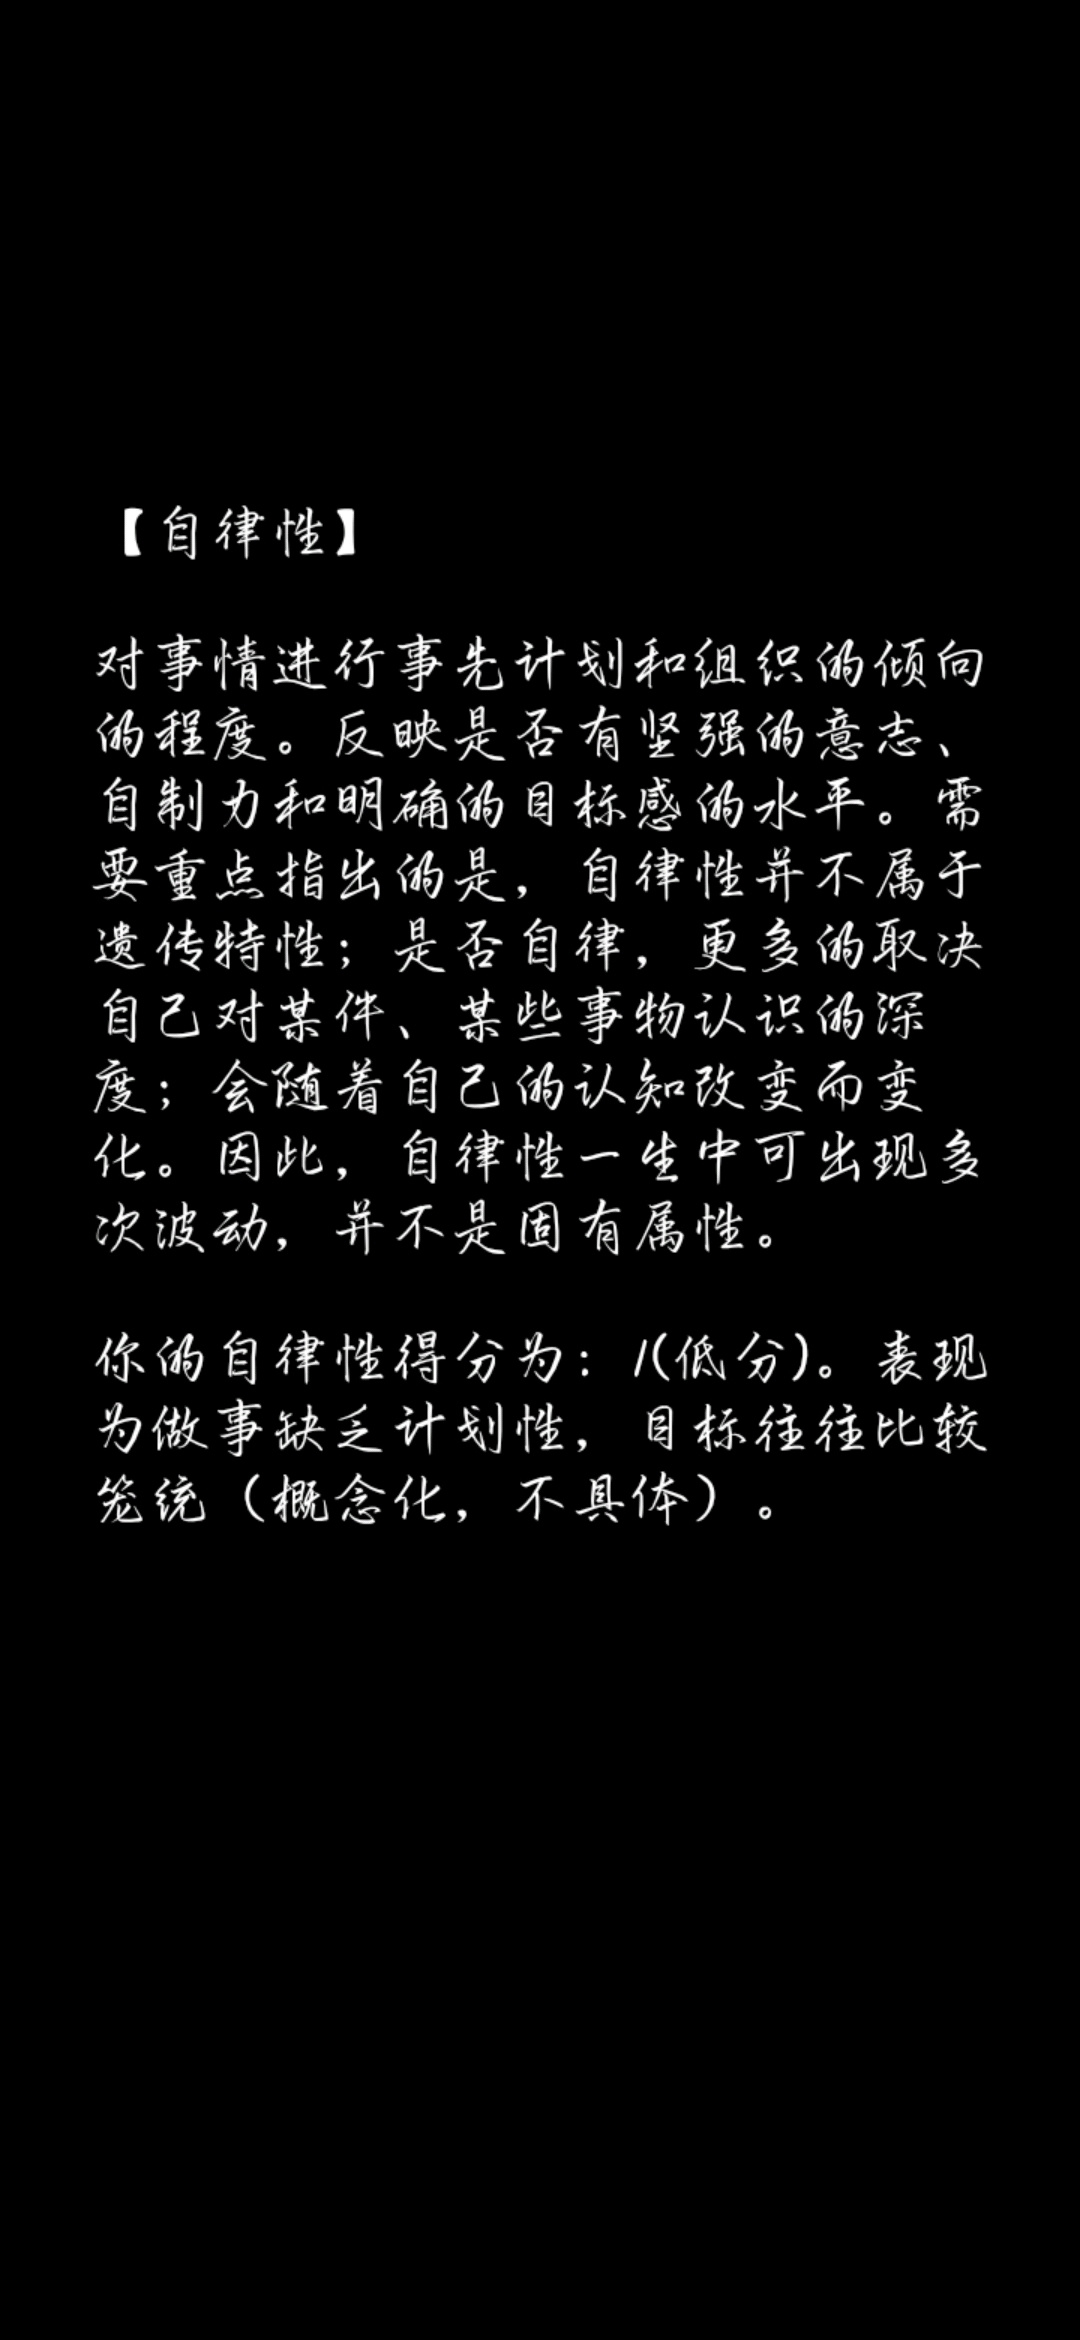 【自律性】
对事情进行事先计划和组织的倾向
的程度。反映是否有坚强的意志、
自制力和明确的目标感的水平。需
要重点指出的是，自律性并不属于
遗传特性；是否自律，更多的取决
自己对某件、某些事物认识的深
度；会随着自己的认知改变而变
化。因此，自律性一生中可出现多
次波动，并不是固有属性。
你的自律性得分为：1(低分)。表现
为做事缺乏计划性，目标往往比较
笼统（概念化，不具体）。